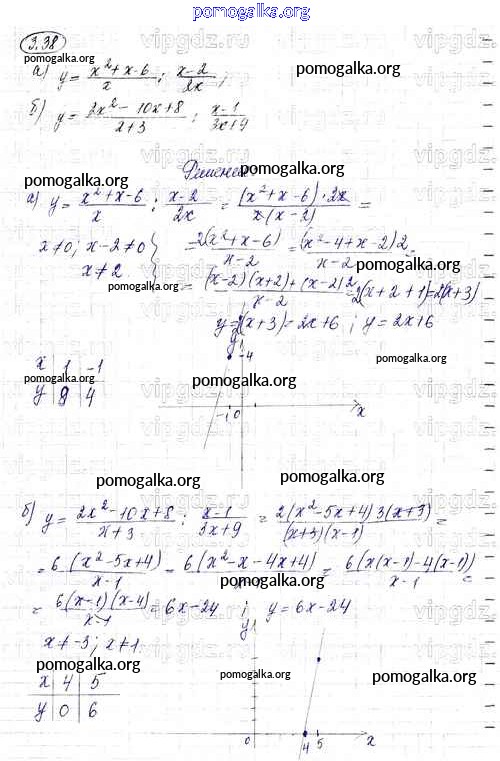 pomogalka.org
3.38
а) y = (x² + x - 6)/x : (x - 2)/2x ;
pomogalka.org
б) y = (2x² - 10x + 8)/(x + 3) : (x - 1)/(3x + 9)
pomogalka.org
Решение
pomogalka.org pomogalka.org
а) y = (x² + x - 6)/x : (x - 2)/2x = (x² + x - 6) · 2x / x(x - 2) =
x ≠ 0; x - 2 ≠ 0 } 2(x² + x - 6)/(x - 2) = (x² - 4 + x - 2)2/(x - 2) =
x ≠ 2. pomogalka.org
pomogalka.org = (x - 2)(x + 2) + (x - 2)2/(x - 2) = 2(x + 2 + 1) = 2(x + 3)
pomogalka.org
y = 2(x + 3) = 2x + 6 ; y = 2x + 6
pomogalka.org
y 4
x | 1 | -1 pomogalka.org
y | 8 | 4 pomogalka.org
-1 0 x
pomogalka.org pomogalka.org
б) y = (2x² - 10x + 8)/(x + 3) : (x - 1)/(3x + 9) = 2(x² - 5x + 4) 3(x + 3)/(x + 3)(x - 1) =
pomogalka.org
= 6(x² - 5x + 4)/(x - 1) = 6(x² - x - 4x + 4) = 6(x(x - 1) - 4(x - 1))/(x - 1) =
pomogalka.org
= 6(x - 1)(x - 4)/(x - 1) = 6x - 24 ; y = 6x - 24
x ≠ -3 ; x ≠ 1. y
pomogalka.org pomogalka.org pomogalka.org
x | 4 | 5
y | 0 | 6
0 4 5 x